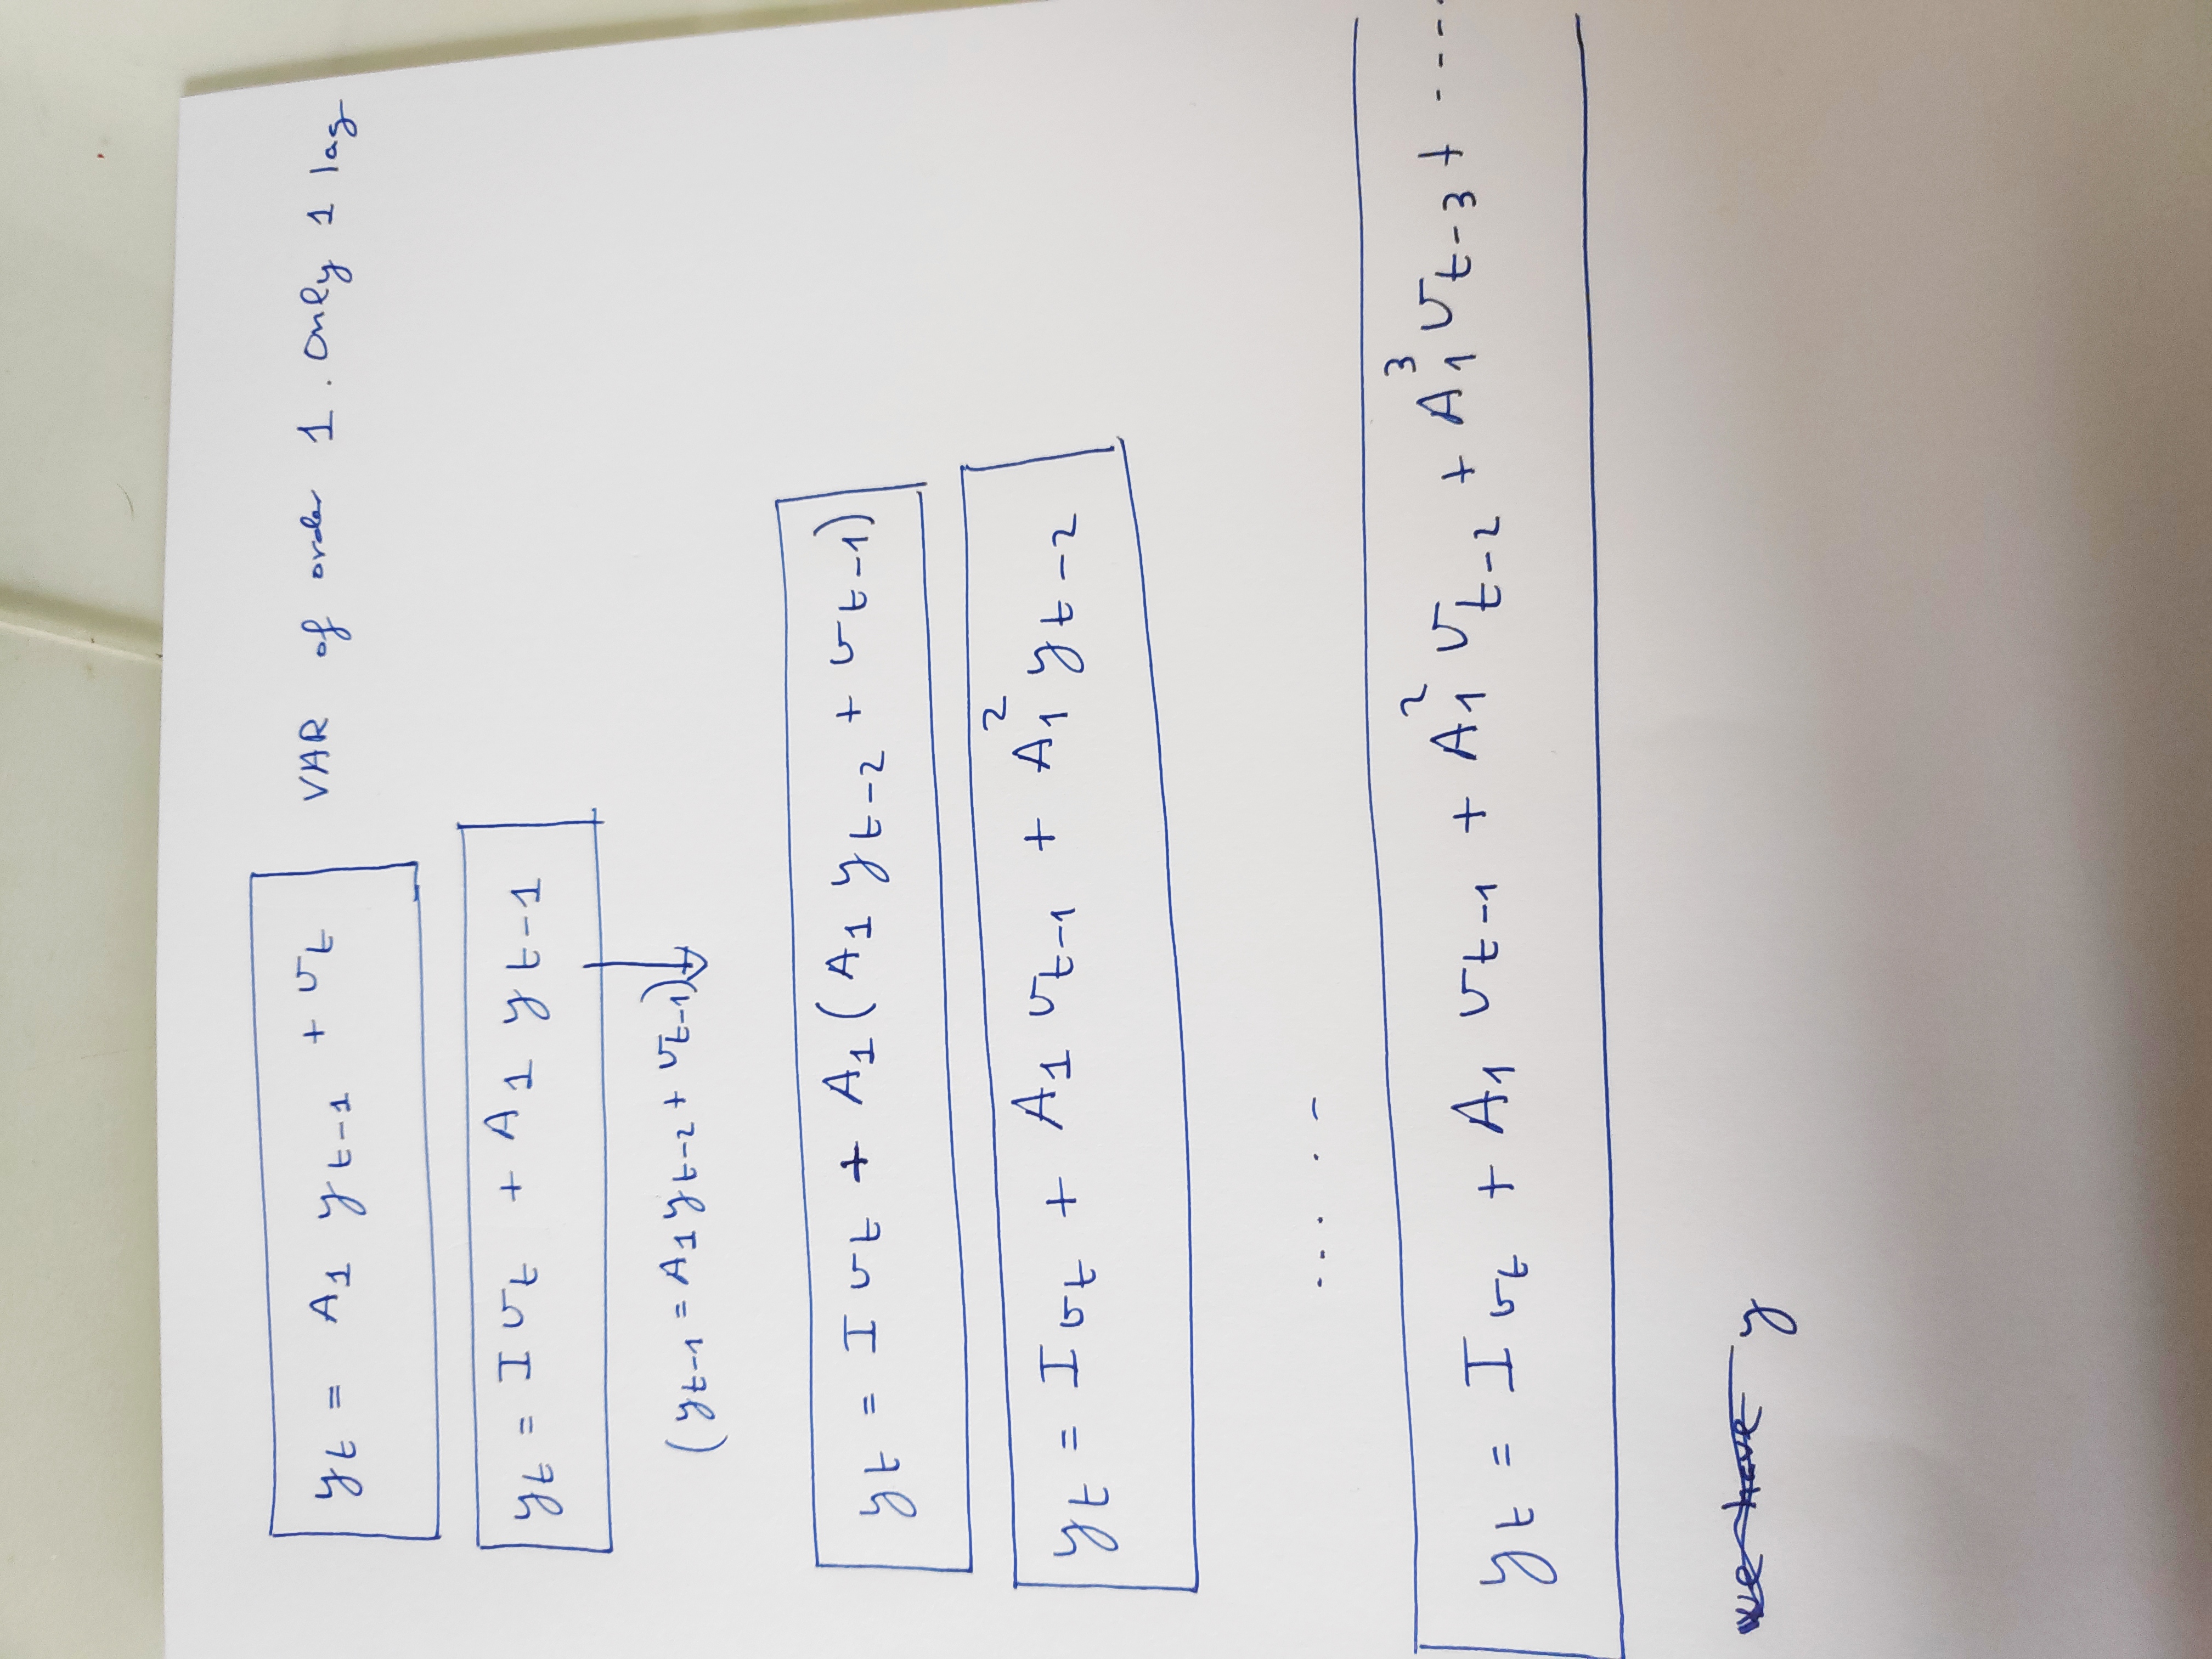 y_t = A_1 y_{t-1} + v_t VAR of order 1. Only 1 lag
y_t = I v_t + A_1 y_{t-1}
(y_{t-1} = A_1 y_{t-2} + v_{t-1})
y_t = I v_t + A_1 (A_1 y_{t-2} + v_{t-1})
y_t = I v_t + A_1 v_{t-1} + A_1^2 y_{t-2}
.... . -
y_t = I v_t + A_1 v_{t-1} + A_1^2 v_{t-2} + A_1^3 v_{t-3} + ----.
we have y